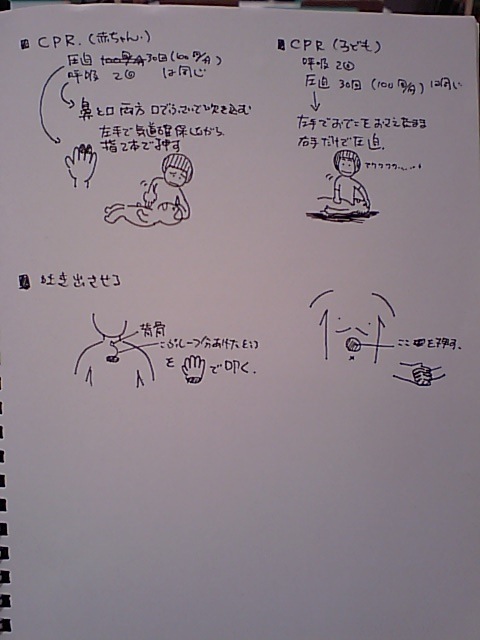 CPR.(赤ちゃん)
圧迫 30回(100回/分)
呼吸 2回 は同じ
鼻と口 両方 口でふさいで吹き込む
左手で気道確保しながら
指2本で押す
CPR(子ども)
呼吸 2回
圧迫 30回(100回/分)は同じ
左手でおでこをおさえたまま
右手だけで圧迫.
アワアワ
吐き出させる
背骨
こぶし一つ分あけたとこ
を でたたく.
ここを押す.